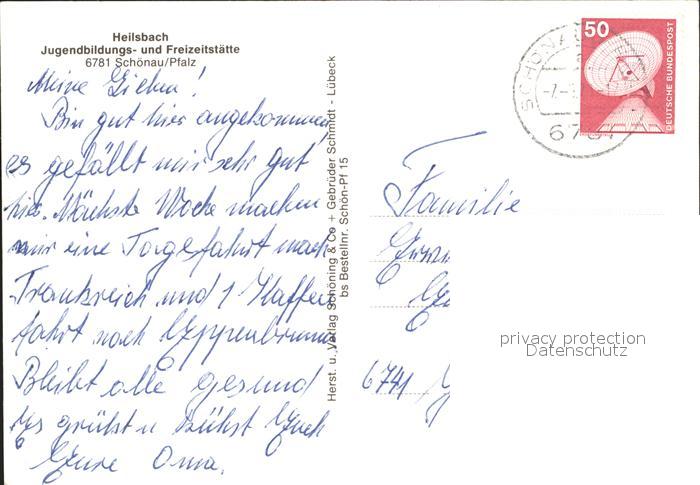 Heilsbach
Jugendbildungs- und Freizeitstätte
6781 Schönau/Pfalz
Meine Lieben!
Bin gut hier angekommen
es gefällt mir sehr gut
hier. Nächste Woche machen
wir eine Tagesfahrt nach
Frankreich und 1 Kaffee
fahrt nach Eppenbrunn
Bleibt alle gesund
Es grüßt u küßt Euch
Eure Oma.
Herst. u. Verlag Schöning & Co + Gebrüder Schmidt - Lübeck
bs Bestellnr. Schön-Pf 15
SCHÖNAU
50
DEUTSCHE BUNDESPOST
Familie
6741
privacy protection
Datenschutz